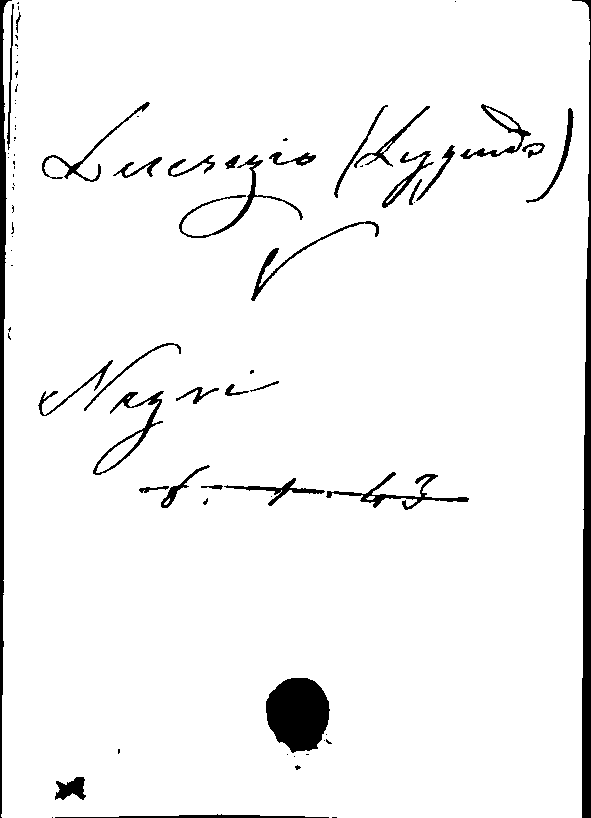 Lucrezio (Leggenda)
V
Negri
8. 1. 43